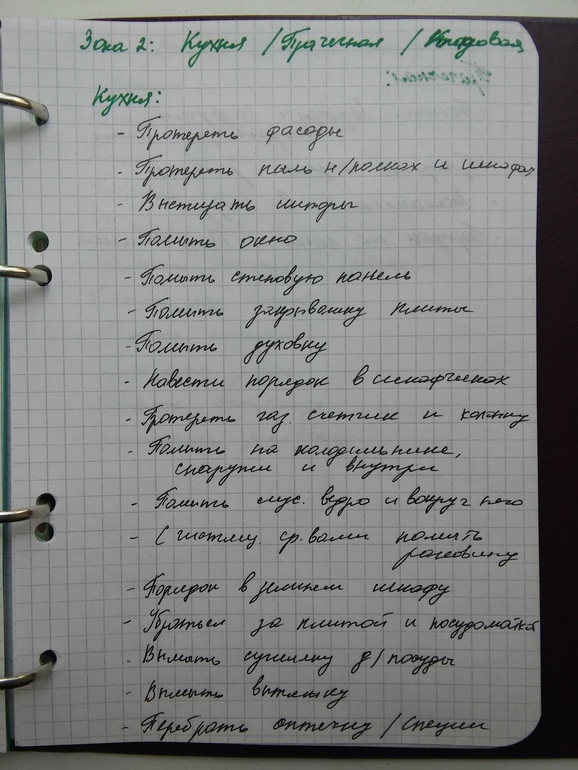 Зона 2: Кухня / Прачечная / Кладовая
Прачечная:
Кухня:
- Протереть фасады
- Протереть пыль н/полках и шкафах
- Постирать шторы
- Помыть окно
- Помыть стеновую панель
- Помыть закрывашку плиты
- Помыть духовку
- Навести порядок в шкафчиках
- Протереть газ. счетчик и колонку
- Помыть на холодильнике,
снаружи и внутри
- Помыть мус. ведро и вокруг него
- С чистящ. ср.вами помыть
раковину
- Порядок в зимнем шкафу
- Убраться за плитой и посудомойкой
- Вымыть сушилку д/посуды
- Вымыть вытяжку
- Перебрать аптечку / специи